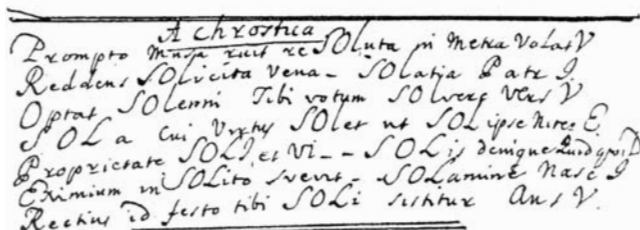 Achrostica
Prompto Musa ruit reSOLuta in Metra VolatV
Reddens SOLicita Vena - SOLatia Patr I.
Optat SOLenni Tibi votum SOLvere VersV
SOL a cui Virtus SOLet ut SOL ipse nites E.
Proprietate SOLI, et Vi - - SOLis denique quidqviD
Eximium in SOLito svevit - SOLamine Nasc I
Rectius id festo tibi SOLi sistitur Aus V.